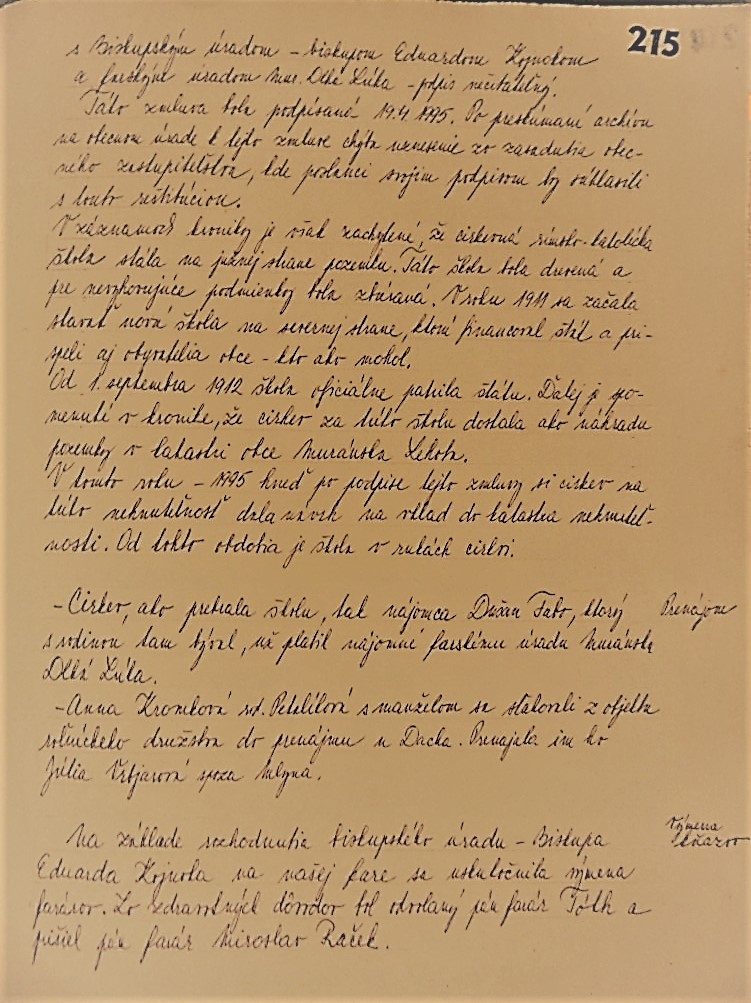 215
s Biskupským úradom - biskupom Eduardom Kojnokom
a farským úradom Mur. Dlhá Lúka - podpis nečitateľný.
Táto zmluva bola podpísaná 19.4.1995. Po preskúmaní archívu
na obecnom úrade k tejto zmluve chýba uznesenie zo zasadnutia obec-
ného zastupiteľstva, kde poslanci svojim podpisom by súhlasili
s touto reštitúciou.
V záznamoch kroniky je však zachytené, že cirkevná rímsko-katolícka
škola stála na južnej strane pozemku. Táto škola bola drevená a
pre nevyhovujúce podmienky bola zbúraná. V roku 1911 sa začala
stavať nová škola na severnej strane, ktorú financoval štát a pri-
speli aj obyvatelia obce - kto ako mohol.
Od 1. septembra 1912 škola oficiálne patrila štátu. Ďalej je spo-
menuté v kronike, že cirkev za túto školu dostala ako náhradu
pozemky v katastri obce Muránska Lehota.
V tomto roku - 1995 hneď po podpise tejto zmluvy si cirkev na
túto nehnuteľnosť dala návrh na vklad do katastra nehnuteľ-
nosti. Od tohto obdobia je škola v rukách cirkvi.
- Cirkev, ako prebrala školu, tak nájomca Dušan Fabo, ktorý
s rodinou tam býval, už platil nájomné farskému úradu Muránska
Dlhá Lúka.
Prenájom
- Anna Kromková rod. Petrlíková s manželom sa sťahovali z objektu
roľníckeho družstva do prenájmu u Dacha. Prenajala im ho
Júlia spoza mlyna.
Na základe rozhodnutia biskupského úradu - Biskupa
Eduarda Kojnoka na našej fare sa uskutočnila výmena
farárov. Zo zdravotných dôvodov bol odvolaný pán farár Tóth a
prišiel pán farár Miroslav Raček.
Výmena
kňazov